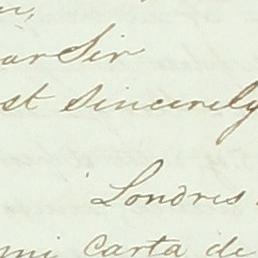 ar Sir
st Sincerely
Londres
mi carta de